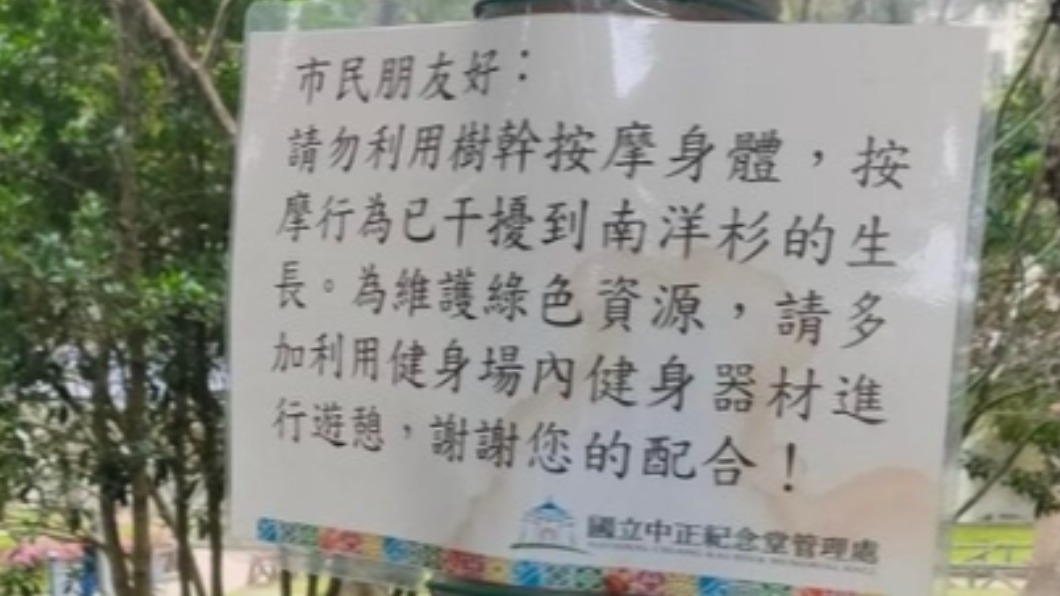 市民朋友好：
請勿利用樹幹按摩身體，按
摩行為已干擾到南洋杉的生
長。為維護綠色資源，請多
加利用健身場內健身器材進
行遊憩，謝謝您的配合！
國立中正紀念堂管理處